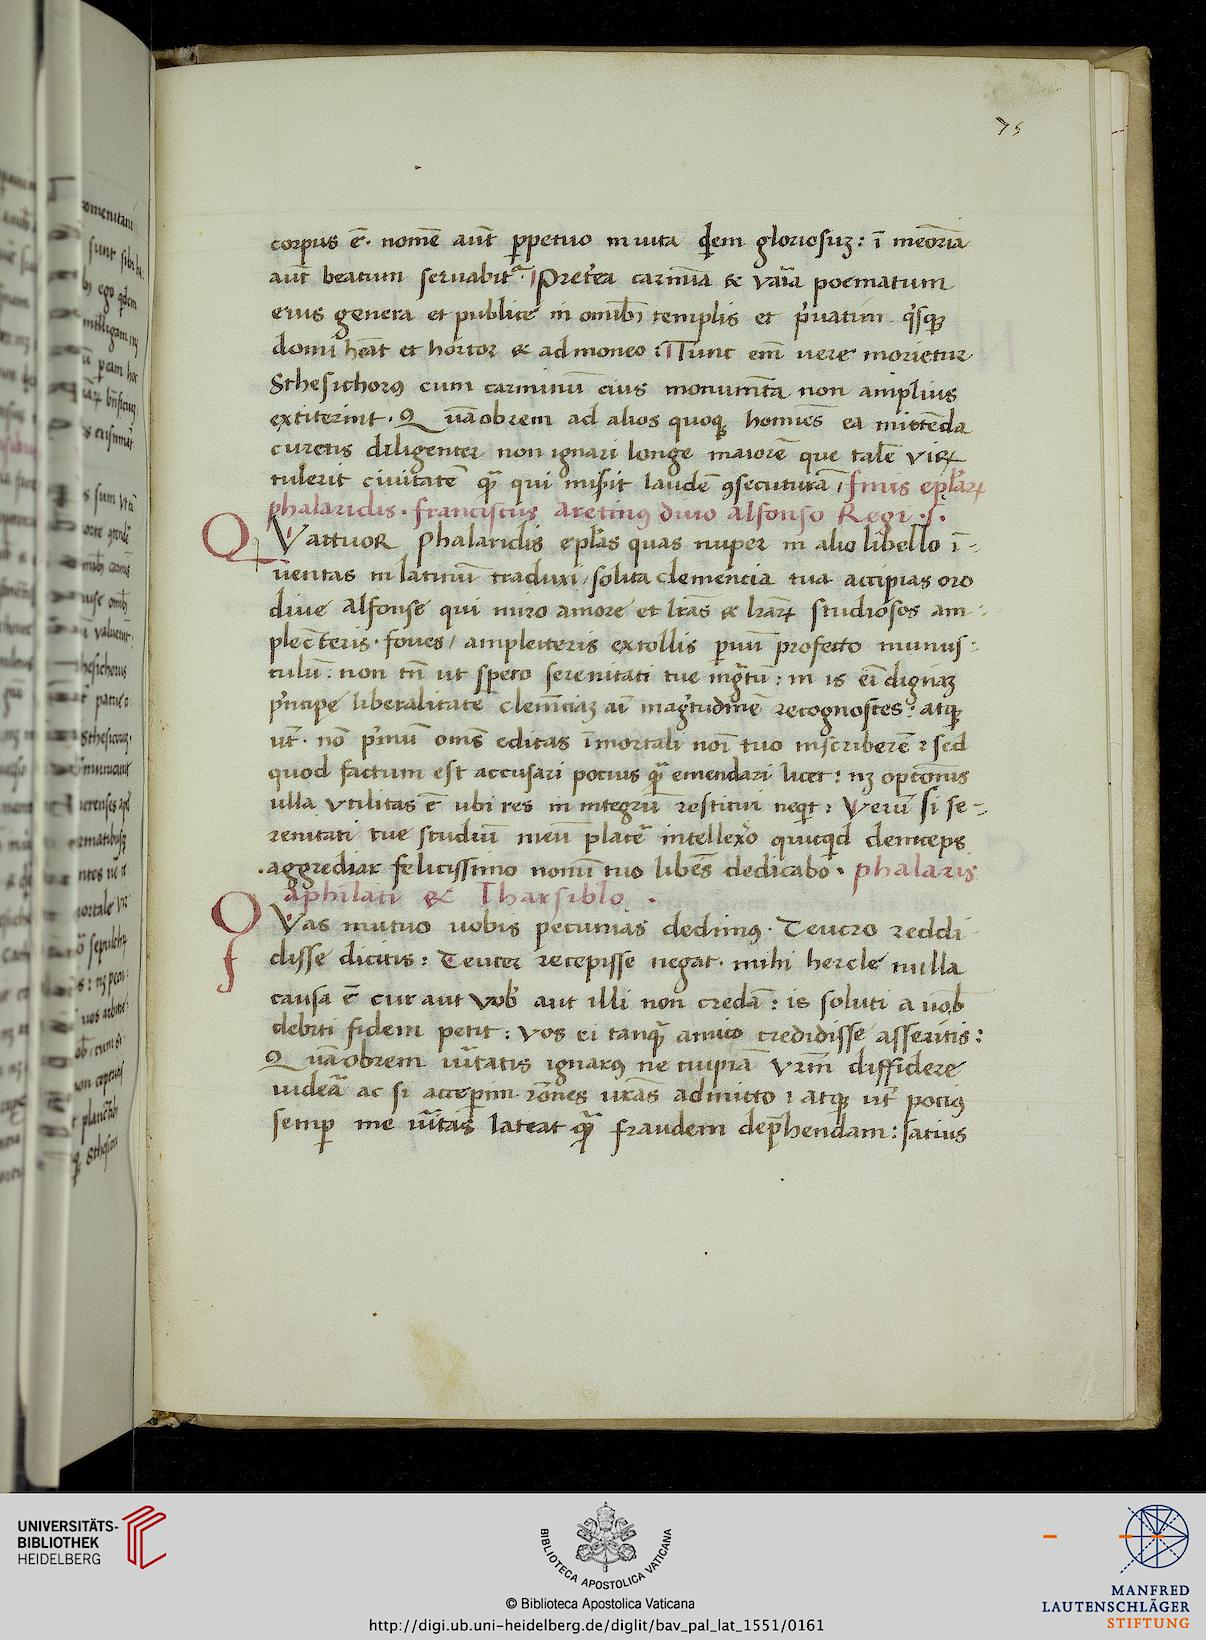 75
corpus ē. nomē aut̄ ꝑpetuo in uita qͥdem gloriosuꝫ: ī meōria
aut̄ beatum seruabitᷓ. Pret̓ea carmīa & vaīa poematum
eius genera et publice in omībꝫ templis et pͥuatim qͥsqꝫ
domi heāt et hortor & admoneo: Tunc em̄ uere morietur
Sthesichorꝰ cum carminū eius monumt̄a non amplius
extiterint. Quāobrem ad alios quoqꝫ homīes ea mittēda
curetis diligenter non ignari longe maiorē que talē viꝝ
tulerit ciuitatē qᷓꝫ qui misit laudē ꝯsecuturā, finis ep̄laꝝ
phalaridis. franciscus aretinꝰ diuo alfonso Regi .s.
QVattuoR phalaridis ep̄las quas nuper in alio libello ī-
uentas in latinū traduxi, solita clemencia tua accipias oro
diue alfonse qui miro amore et lr̄as & lr̄aꝝ studiosos am-
plecteris. foues, amplectteris extollis ꝑuū profecto munus-
culū: non tn̄ ut spero serenitati tue ingᷓtū: in is eī dignaꝫ
pͥncipe liberalitate clem̄ciaꝫ aī magͥtudinē recognosces: atqꝫ
ut̓. nō pͥmū om̄s editas īmortali noī tuo inscriberē: sed
quod factum est accusari pocius qᷓꝫ emendari licet: nꝫ optōnis
ulla vtilitas ē ubi res in integrū restitui neqͥt: Verū si se-
renitati tue studiū meū placeᷓ intellexͦo quicqͥd deinceps
aggrediar felicissimo nomī tuo libēs dedicabo. phalaris
aphilati & Tharsiblo .
QVas mutuo uobis pecunias dedimꝰ. Teucro reddi
disse dicitis: Teucer recepisse negat. mihi hercle nulla
causa ē cur aut vob̓ aut illi non credā: is soluti a uob̓
debiti fidem petit: vos ei tanqᷓꝫ amico credidisse asseritis:
Quāobrem uītatis ignarꝰ ne cuipiā vr̄m diffidere
uideā ac si acceꝑim rōnes ur̄as admitto: atqꝫ ut̓ pociꝰ
semꝑ me uītas lateat qᷓꝫ fraudem dep̄hendam: satius
UNIVERSITÄTS-
BIBLIOTHEK
HEIDELBERG
BIBLIOTECA APOSTOLICA VATICANA
© Biblioteca Apostolica Vaticana
http://digi.ub.uni-heidelberg.de/diglit/bav_pal_lat_1551/0161
MANFRED
LAUTENSCHLÄGER
STIFTUNG